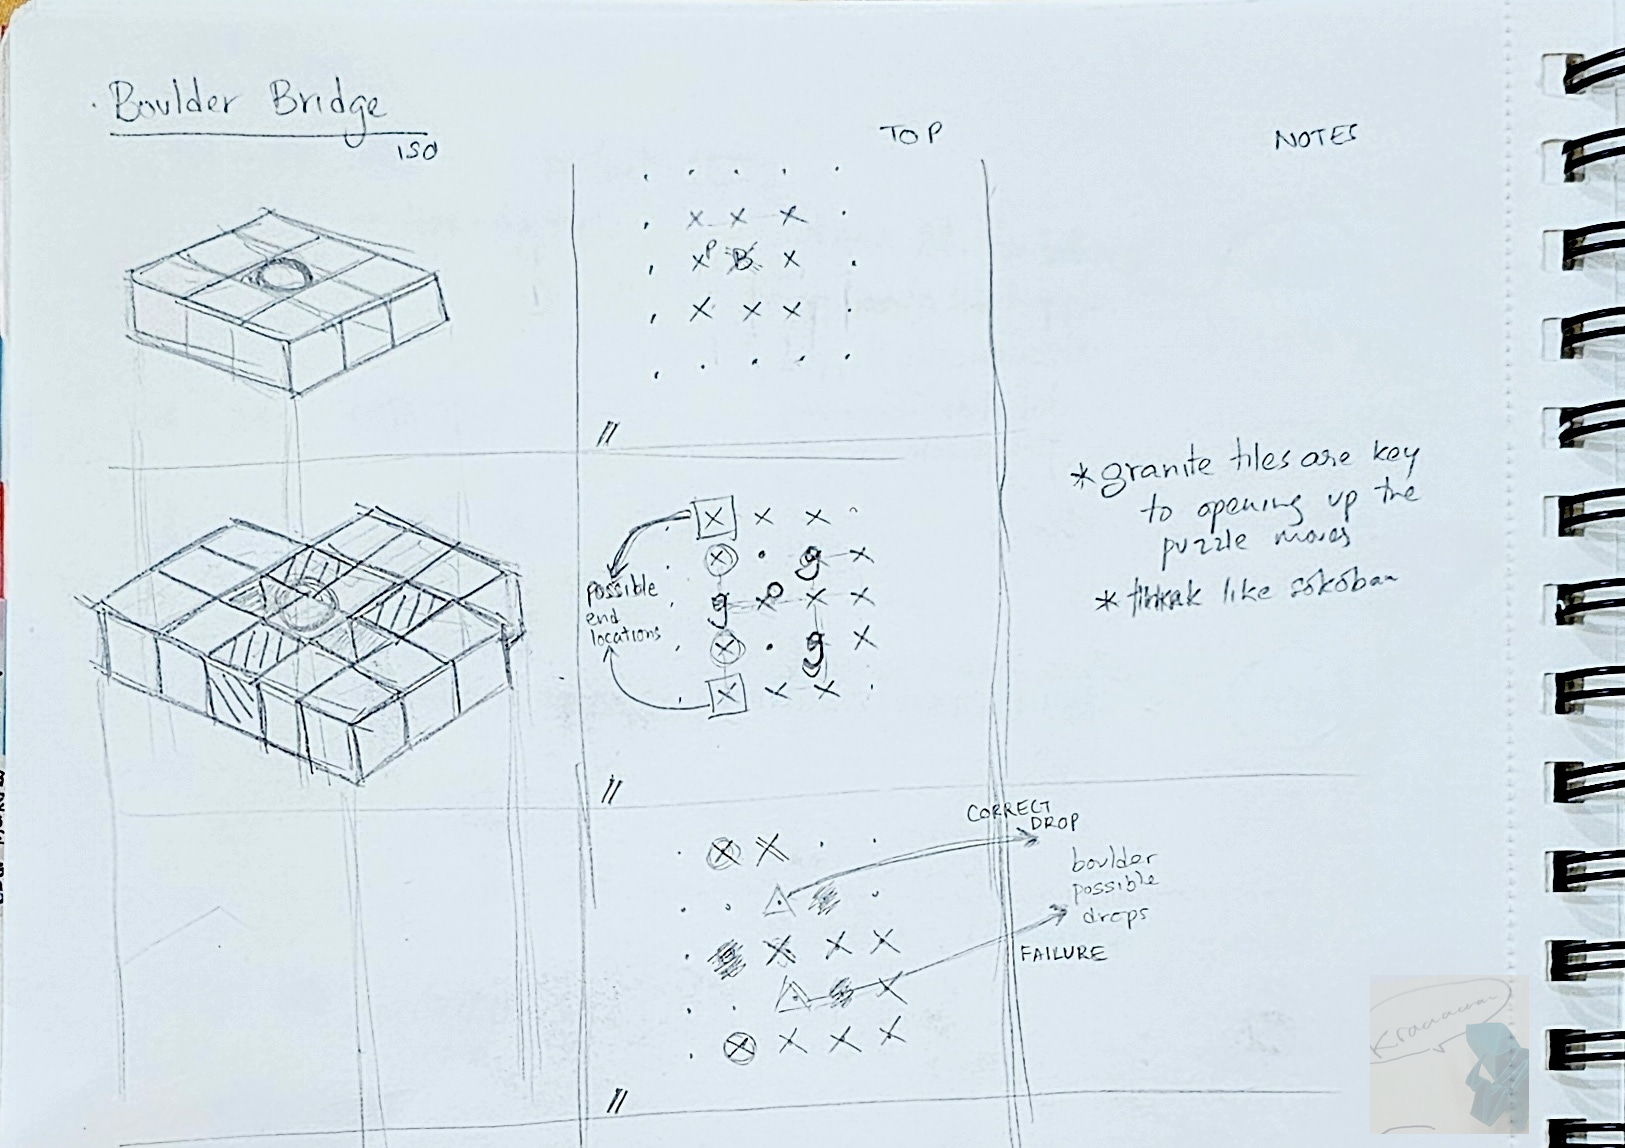 Boulder Bridge
ISO
TOP
NOTES
. . . . .
. x x x .
. x P B x .
. x x x .
. . . . .
//
* granite tiles are key
to opening up the
puzzle moves
* like sokoban
possible
end
locations
x x x .
. x . g x
. g x P x x
. x . g x
. x x x .
//
CORRECT
DROP
boulder
possible
drops
FAILURE
. x x . .
. . . .
. x x x
. . . x
. x x x x
//